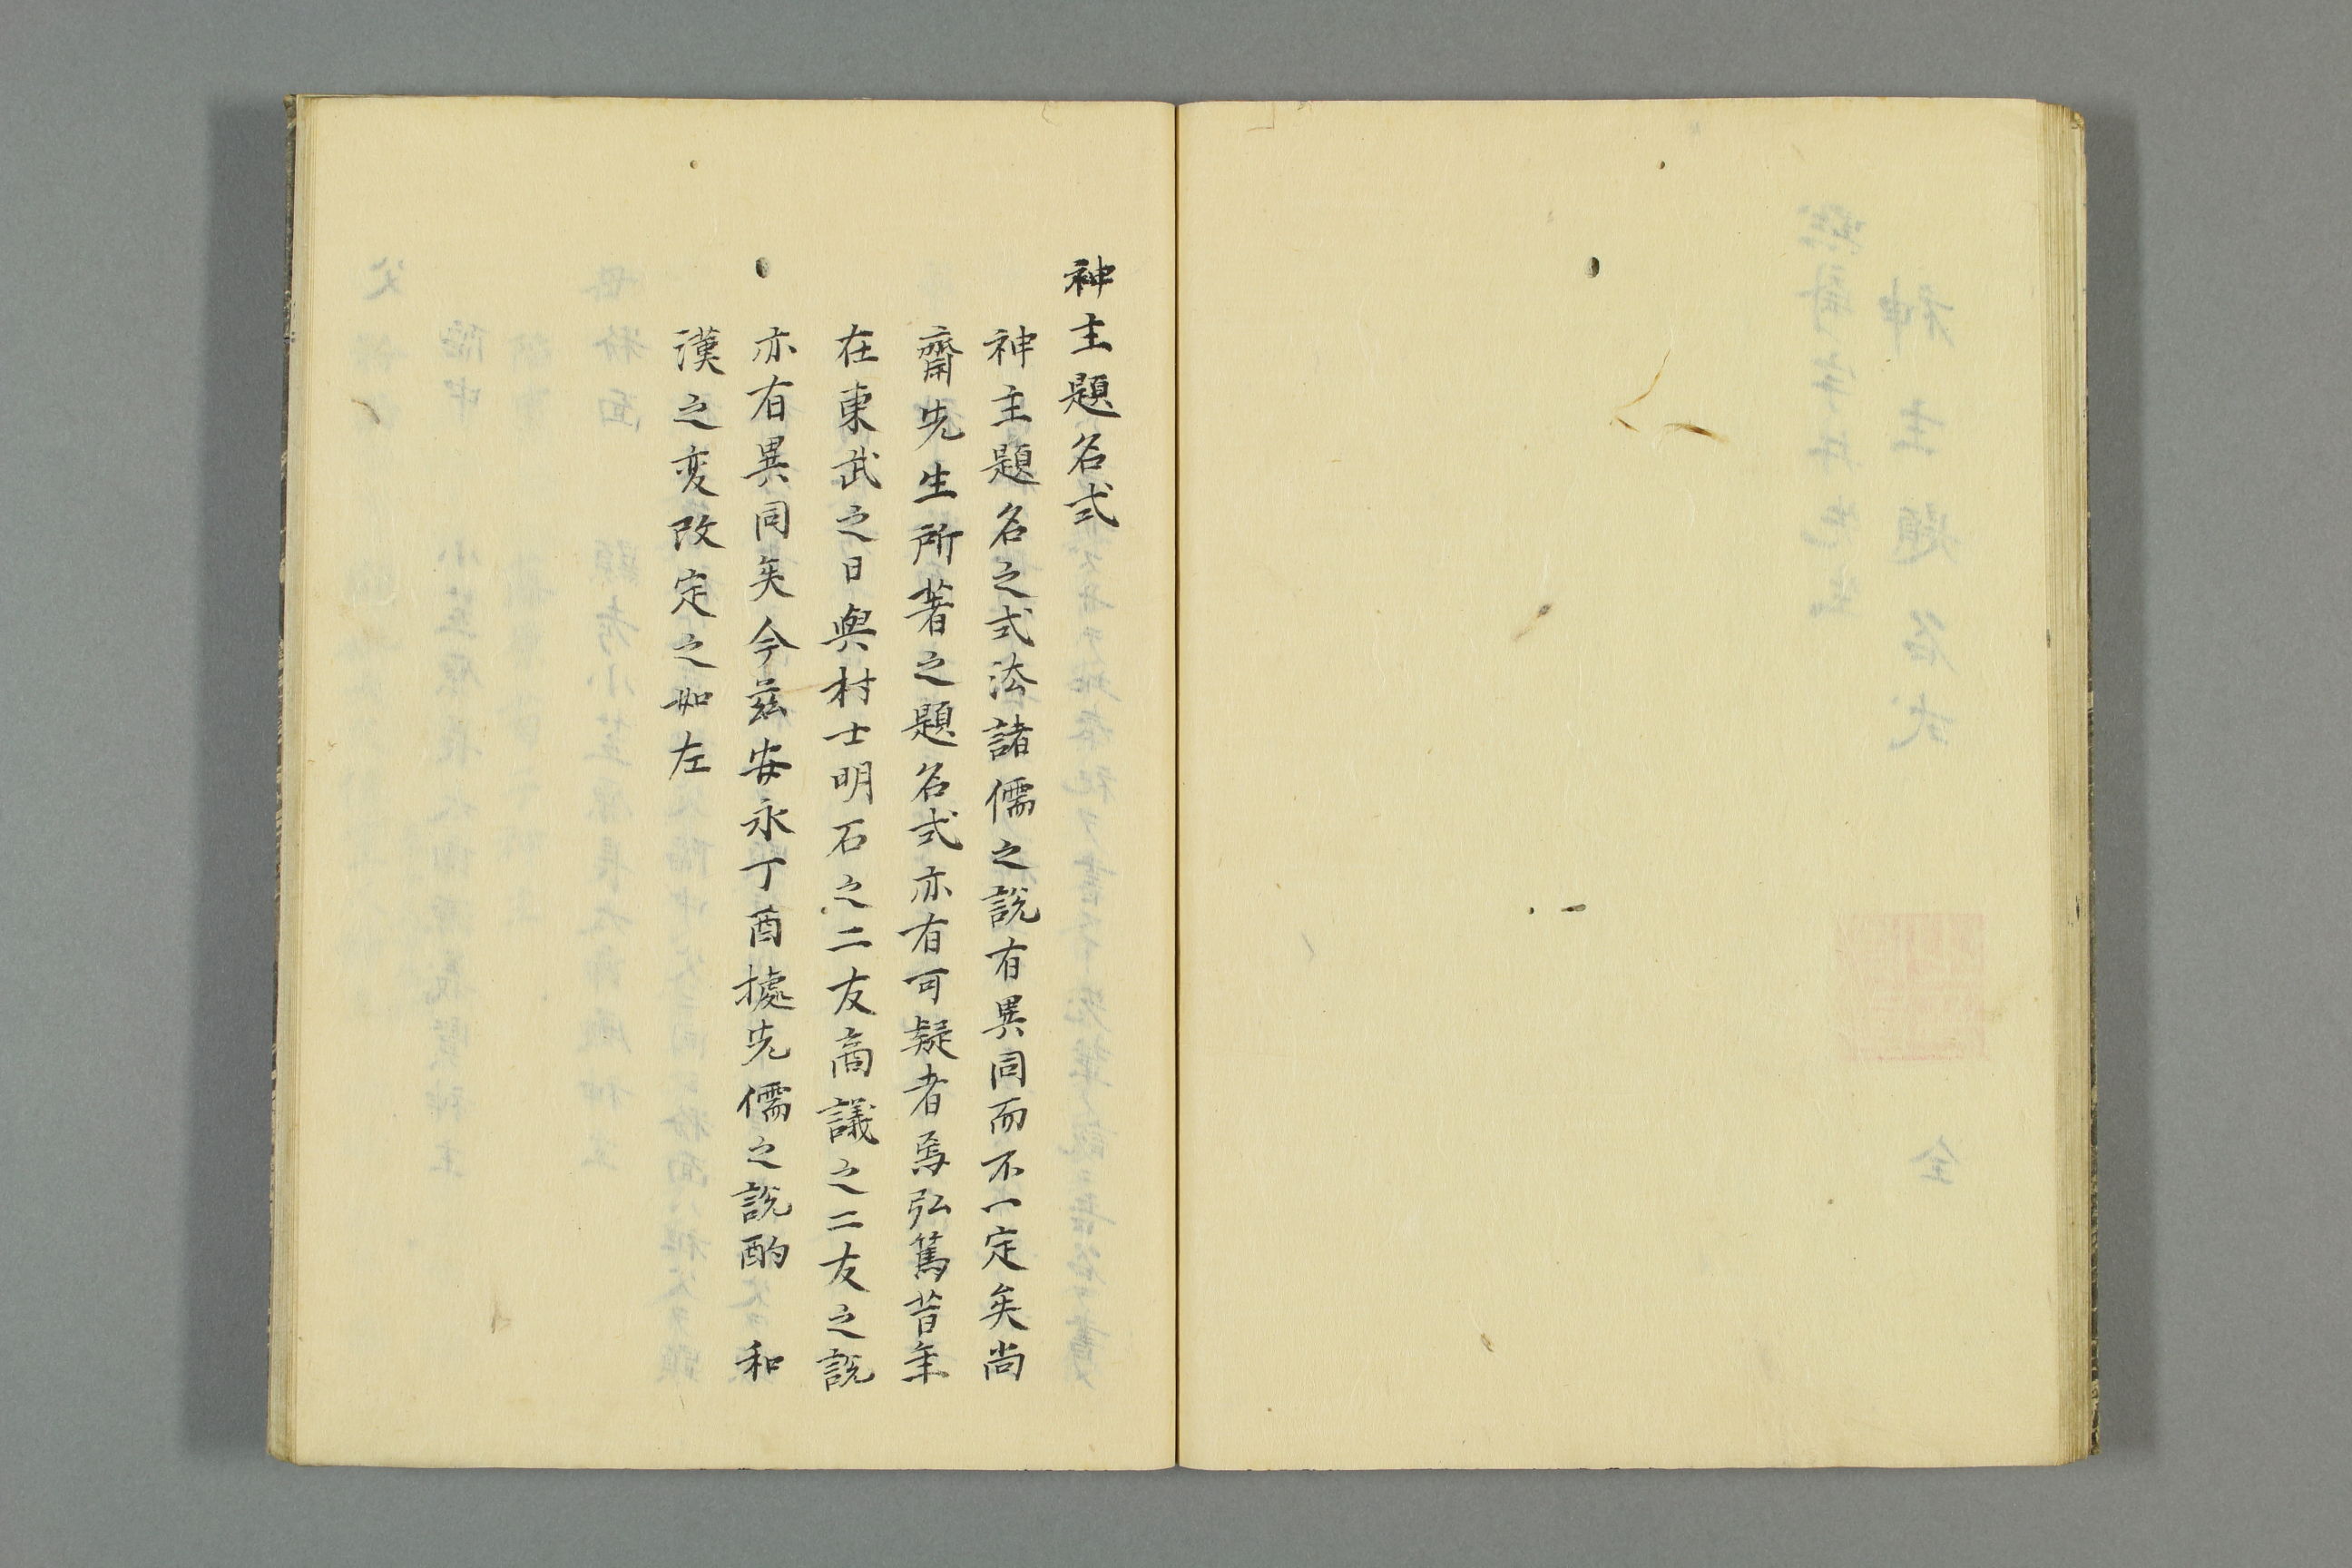 神主題名式
神主題名之式法諸儒之説有異同而不一定矣尚
齋先生所著之題名式亦有可疑者焉弘篤昔年
在東武之日與村士明石之二友商議之二友之説
亦有異同矣今茲安永丁酉據先儒之説酌　和
漢之変改定之如左